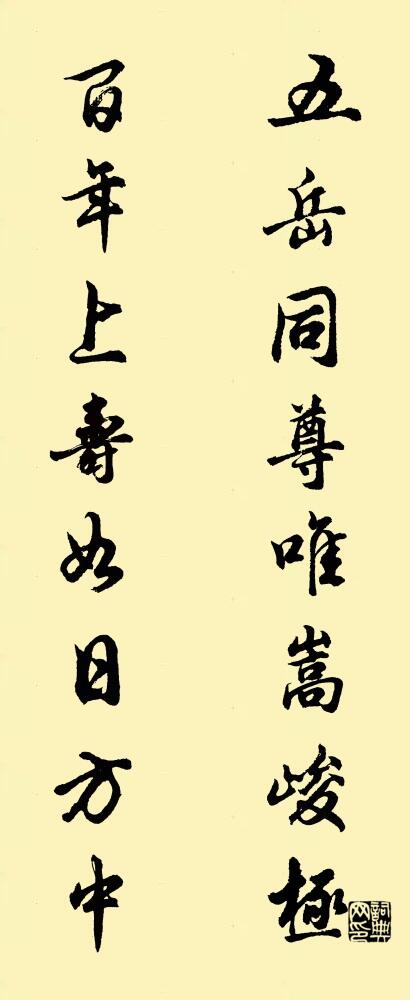 五岳同尊唯嵩峻極
百年上壽如日方中
詞典网印